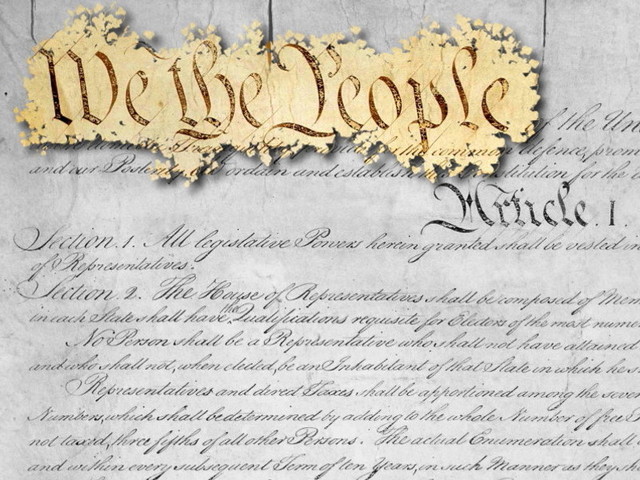 We the People
of the Un
defence, prom
and our Posterity, do ordain and establish this Constitution for the
Article. I.
Section. 1. All legislative Powers herein granted shall be vested in
of Representatives.
Section. 2. The House of Representatives shall be composed of Mem
in each State shall have the Qualifications requisite for Electors of the most nume
No Person shall be a Representative who shall not have attained
and who shall not, when elected, be an Inhabitant of that State in which he s
Representatives and direct Taxes shall be apportioned among the seve
Numbers, which shall be determined by adding to the whole Number of free P
not taxed, three fifths of all other Persons. The actual Enumeration shall
and within every subsequent Term of ten Years, in such Manner as they sh